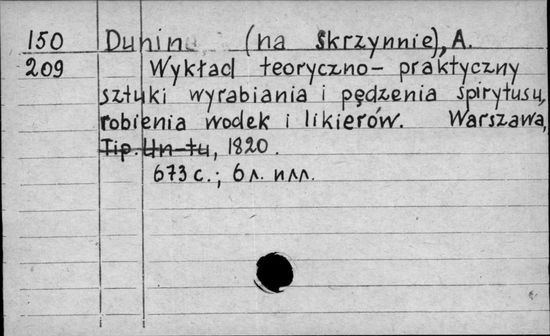 150 Dunin (na Skrzynnie), A.
209 Wykład teoryczno-praktyczny
sztuki wyrabiania i pędzenia spirytusu,
robienia wodek i likierów. Warszawa,
Tip. Un-tu, 1820.
673 с.; 6 л. илл.